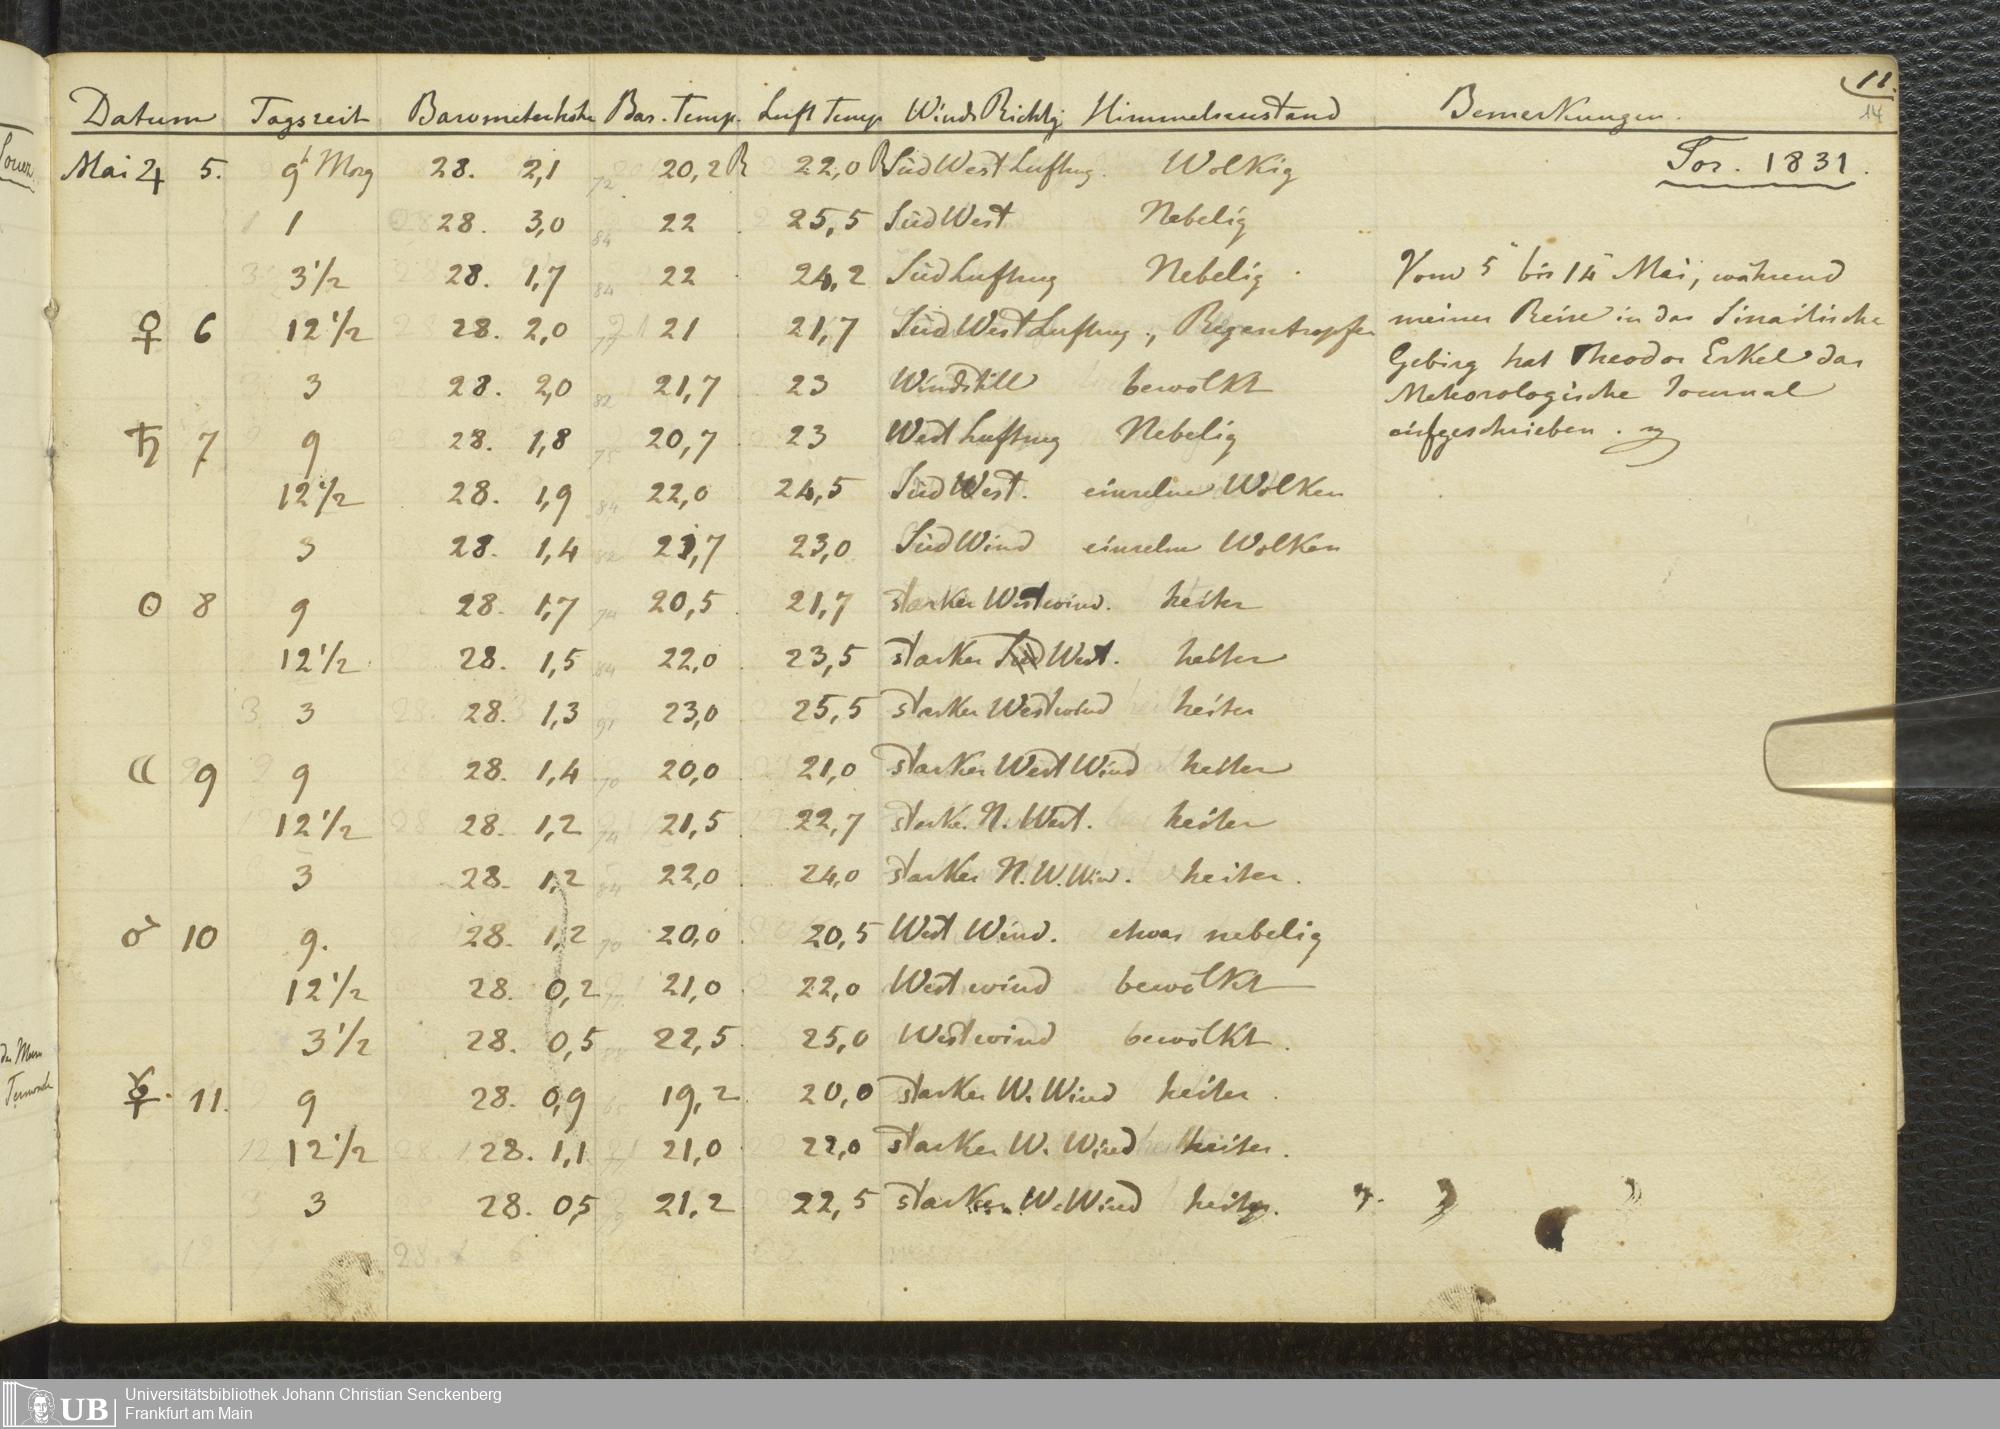 11.
14
Datum Tagszeit Barometerhöhe Bar. Temp. Luft Temp Winds Richtg Himmelszustand Bemerkungen.
Tor. 1831.
Mai ♃ 5. 9h Morg 28. 2,1 72 20,2 R 22,0 R SüdWest Luftzug. Wolkig
1 28. 3,0 84 22 25,5 SüdWest Nebelig
3 1/2 28. 1,7 84 22 24,2 Südluftzug Nebelig
♀ 6 12 1/2 28. 2,0 77 21 21,7 SüdWestLuftzug, Regentropfen
3 28. 2,0 82 21,7 23 Windstill bewölkt
♄ 7 9 28. 1,8 75 20,7 23 West Luftzug Nebelig
12 1/2 28. 1,9 84 22,0 24,5 SüdWest. einzelne Wolken
3 28. 1,4 82 21,7 23,0 SüdWind einzelne Wolken
☉ 8 9 28. 1,7 74 20,5 21,7 starker Westwind. heiter
12 1/2 28. 1,5 84 22,0 23,5 starker Süd West. heiter
3 28. 1,3 91 23,0 25,5 starker Westwind heiter
☾ 9 9 28. 1,4 70 20,0 21,0 starker West Wind heiter
12 1/2 28. 1,2 74 21,5 22,7 starker N. West. heiter
3 28. 1,2 84 22,0 24,0 starker N. W. Win. heiter.
♂ 10 9. 28. 1,2 70 20,0 20,5 West Wind. etwas nebelig
12 1/2 28. 0,2 77 21,0 22,0 Westwind bewölkt
3 1/2 28. 0,5 88 22,5 25,0 Westwind bewölkt.
☿. 11. 9 28. 0,9 65 19,2 20,0 starker W. Wind heiter.
12 1/2 28. 1,1 77 21,0 22,0 starker W. Wind heiter.
3 28. 0,5 79 21,2 22,5 starker W. Wind heiter.
Vom 5 bis 14 Mai, während
meiner Reise in das Sinaitische
Gebirg hat Theodor Erkel das
Meteorologische Journal
aufgeschrieben.
UB
Universitätsbibliothek Johann Christian Senckenberg
Frankfurt am Main